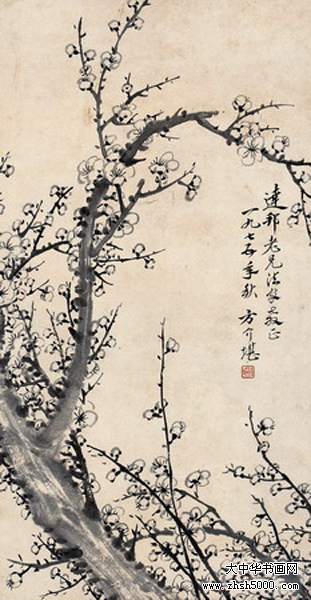 達邦老兄法家教正
一九七五年秋 方介堪
大中华书画网
www.zhsh5000.com